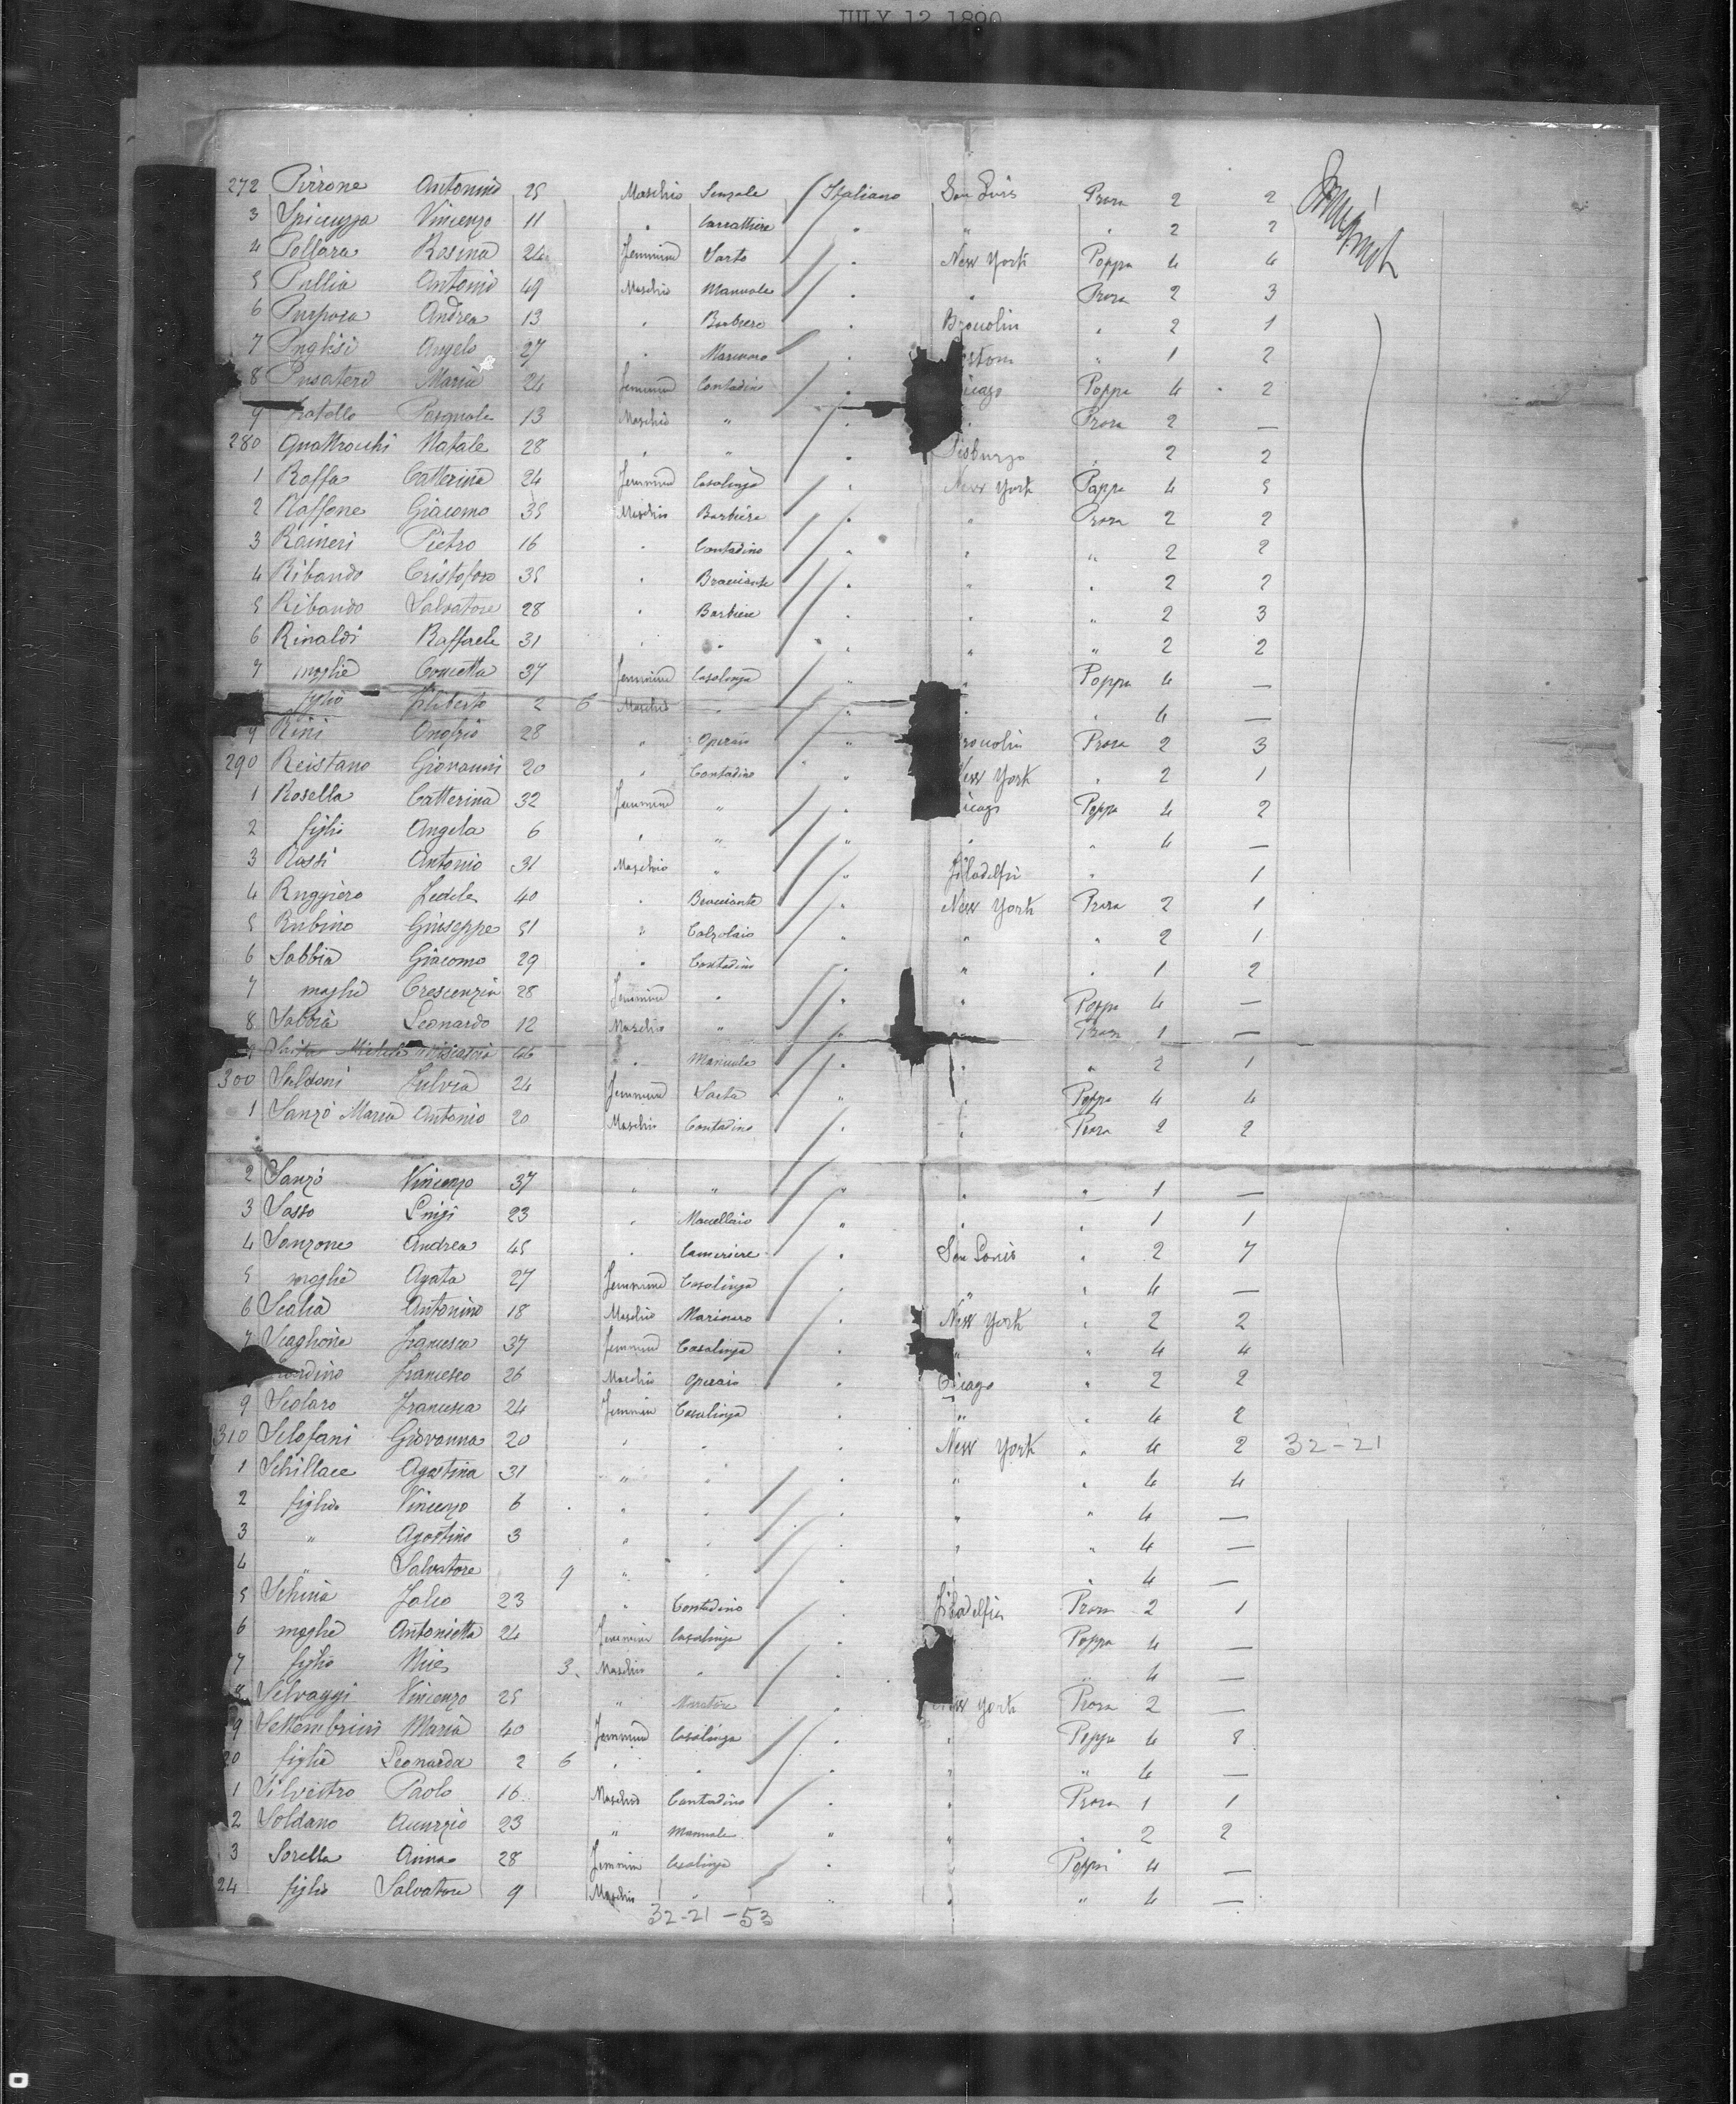 JULY 12 1890
272 Pirrone Antonino 25 Maschio Sensale Italiano San Luis Prora 2 2
3 Spicuzza Vincenzo 11 " " " " 2 2
4 Pollara Rosina 24 Femmina Sarto " New York Poppa 4 4
5 Pullia Antonio 49 Maschio Manuale " " Prora 2 3
6 Purpora Andrea 13 " Barbiere " Broucolin " 2 1
7 Inghisi Angelo 27 " Marinaro " " 1 2
8 Pusateri Maria 24 Femmina Contadino " icago Poppa 4 2
9 fratello Pasquale 13 Maschio " " " Prora 2 —
280 Quattrocchi Natale 28 " " " " 2 2
1 Raffa Catterina 24 Femmina Casalinga " New York Poppa 4 5
2 Raffone Giacomo 35 Maschio Barbiere " " Prora 2 2
3 Raineri Pietro 16 " Contadino " " " 2 2
4 Ribando Cristoforo 35 " Bracciante " " " 2 2
5 Ribando Salvatore 28 " Barbiere " " " 2 3
6 Rinaldi Raffaele 31 " " " " " 2 2
7 moglie Concetta 37 Femmina Casalinga " " Poppa 4 —
figlio Filiberto 2 6 Maschio " " " " 4 —
9 Rini Onofrio 28 " Operaio " roucolin Prora 2 3
290 Reistano Giovanni 20 " Contadino " New York " 2 1
1 Rosella Catterina 32 Femmina " " icago Poppa 4 2
2 figlia Angela 6 " " " " " 4 —
3 Rossi Antonio 31 Maschio " " Filadelfia " 1
4 Ruggiero Fedele 40 " Bracciante " New York Prora 2 1
5 Rubino Giuseppe 51 " Calzolaio " " " 2 1
6 Sabbia Giacomo 29 " Contadino " " " 1 2
7 moglie Crescenzia 28 Femmina " " " Poppa 4 —
8 Sabbia Leonardo 12 Maschio " " " Prora 1 —
9 Saitta Michele 46 " Manuale " " " 2 1
300 Saldoni Fulvia 24 Femmina Sarta " " Poppa 4 4
1 Sanzò Maria Antonio 20 Maschio Contadino " " Prora 2 2
2 Sanzò Vincenzo 37 " " " " " 1 —
3 Sasso Luigi 23 " Macellaio " " " 1 1
4 Sanzone Andrea 45 " Cameriere " San Louis " 2 7
5 moglie Agata 27 Femmina Casalinga " " " 4 —
6 Scalia Antonino 18 Maschio Marinaro " New York " 2 2
7 Scaglione Francesca 37 Femmina Casalinga " " " 4 4
Francesco 26 Maschio Operaio " Cicago " 2 2
9 Scolaro Francesca 24 Femmin Casalinga " " " 4 2
310 Sclofani Giovanna 20 " " " New York " 4 2 32-21
1 Schillace Agostina 31 " " " " " 4 4
2 figlio Vincenzo 6 " " " " " 4 —
3 " Agostino 3 " " " " " 4 —
4 " Salvatore 9 " " " " " 4 —
5 Schina 23 " Contadino " Filadelfia Prora 2 1
6 moglie Antonietta 24 Femmina Casalinga " Poppa 4 —
7 figlio 3 Maschio " " " 4 —
8 Selvaggi Vincenzo 25 " Muratore " New York Prora 2 —
9 Settembrini Maria 40 Femmina Casalinga " " Poppa 4 8
20 figlia Leonarda 2 6 " " " " " 4 —
1 Silvestro Paolo 16 Maschio Contadino " " Prora 1 1
2 Soldano 23 " Manuale " " " 2 2
3 Sorella Anna 28 Femmin Casalinga " " Poppa 4 —
24 figlio Salvatore 9 Maschio " " " " 4 —
32-21-53